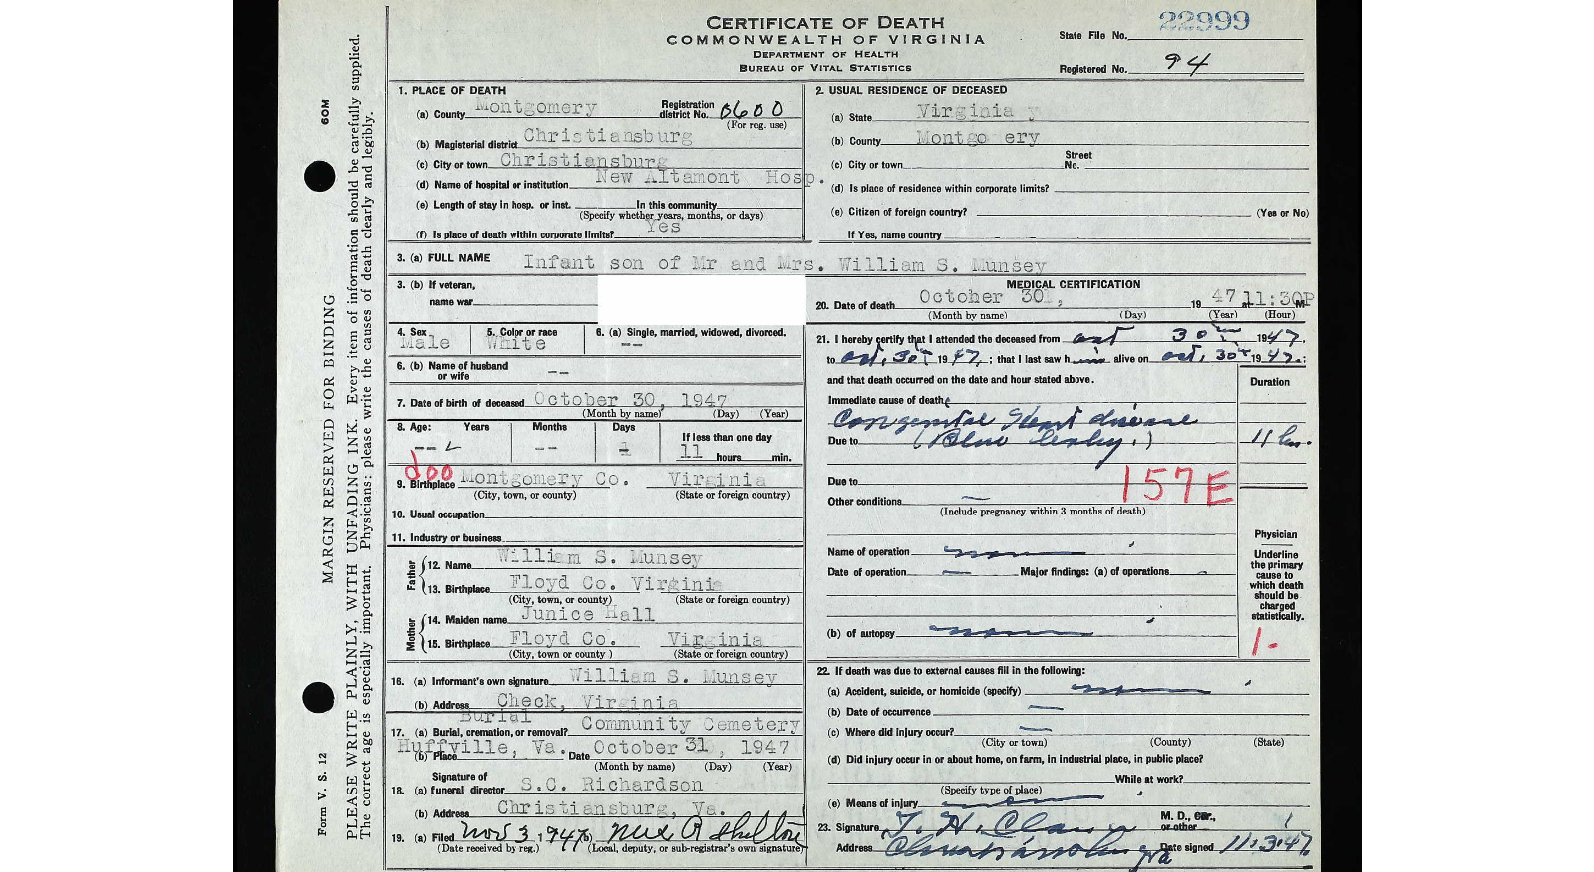 CERTIFICATE OF DEATH
COMMONWEALTH OF VIRGINIA
DEPARTMENT OF HEALTH
BUREAU OF VITAL STATISTICS
State File No. 22999
Registered No. 94
60M
MARGIN RESERVED FOR BINDING
Form V. S. 12
PLEASE WRITE PLAINLY, WITH UNFADING INK. Every item of information should be carefully supplied.
The correct age is especially important. Physicians: please write the causes of death clearly and legibly.
1. PLACE OF DEATH
(a) County Montgomery Registration district No. 0600
(For reg. use)
(b) Magisterial district Christiansburg
(c) City or town Christiansburg
(d) Name of hospital or institution New Altamont Hosp.
(e) Length of stay in hosp. or inst. In this community
(Specify whether years, months, or days)
(f) Is place of death within corporate limits? Yes
2. USUAL RESIDENCE OF DECEASED
(a) State Virginia
(b) County Montgo ery
(c) City or town Street No.
(d) Is place of residence within corporate limits?
(e) Citizen of foreign country? (Yes or No)
If Yes, name country
3. (a) FULL NAME Infant son of Mr and Mrs. William S. Munsey
3. (b) If veteran,
name war
4. Sex Male 5. Color or race White 6. (a) Single, married, widowed, divorced. --
6. (b) Name of husband or wife --
7. Date of birth of deceased October 30, 1947
(Month by name) (Day) (Year)
8. Age: Years Months Days If less than one day
-- -- 11 hours min.
9. Birthplace Montgomery Co. Virginia
(City, town, or county) (State or foreign country)
10. Usual occupation
11. Industry or business
Father
12. Name William S. Munsey
13. Birthplace Floyd Co. Virginia
(City, town, or county) (State or foreign country)
Mother
14. Maiden name Junice Hall
15. Birthplace Floyd Co. Virginia
(City, town or county) (State or foreign country)
16. (a) Informant's own signature William S. Munsey
(b) Address Check, Virginia
17. (a) Burial, cremation, or removal? Burial Community Cemetery
(b) Place Huffville, Va. Date October 31, 1947
(Month by name) (Day) (Year)
18. (a) Signature of funeral director S.C. Richardson
(b) Address Christiansburg, Va.
19. (a) Filed Nov 3, 1947 (b) Shelton
(Date received by reg.) (Local, deputy, or sub-registrar's own signature)
MEDICAL CERTIFICATION
20. Date of death October 30, 1947 at 11:30P M
(Month by name) (Day) (Year) (Hour)
21. I hereby certify that I attended the deceased from Oct 30th 1947,
to Oct, 30th 1947; that I last saw him alive on Oct, 30th 1947;
and that death occurred on the date and hour stated above.
Duration
Immediate cause of death
Congenital Heart disease
Due to (Blue baby.) 11 hrs.
Due to
157E
Other conditions
(Include pregnancy within 3 months of death)
Name of operation none
Date of operation — Major findings: (a) of operations
(b) of autopsy none
Physician
Underline the primary cause to which death should be charged statistically.
1-
22. If death was due to external causes fill in the following:
(a) Accident, suicide, or homicide (specify) none
(b) Date of occurrence —
(c) Where did injury occur? —
(City or town) (County) (State)
(d) Did injury occur in or about home, on farm, in industrial place, in public place?
While at work?
(Specify type of place)
(e) Means of injury none
23. Signature T. H. M. D., or other
Address Christiansburg Va Date signed 11.3.47